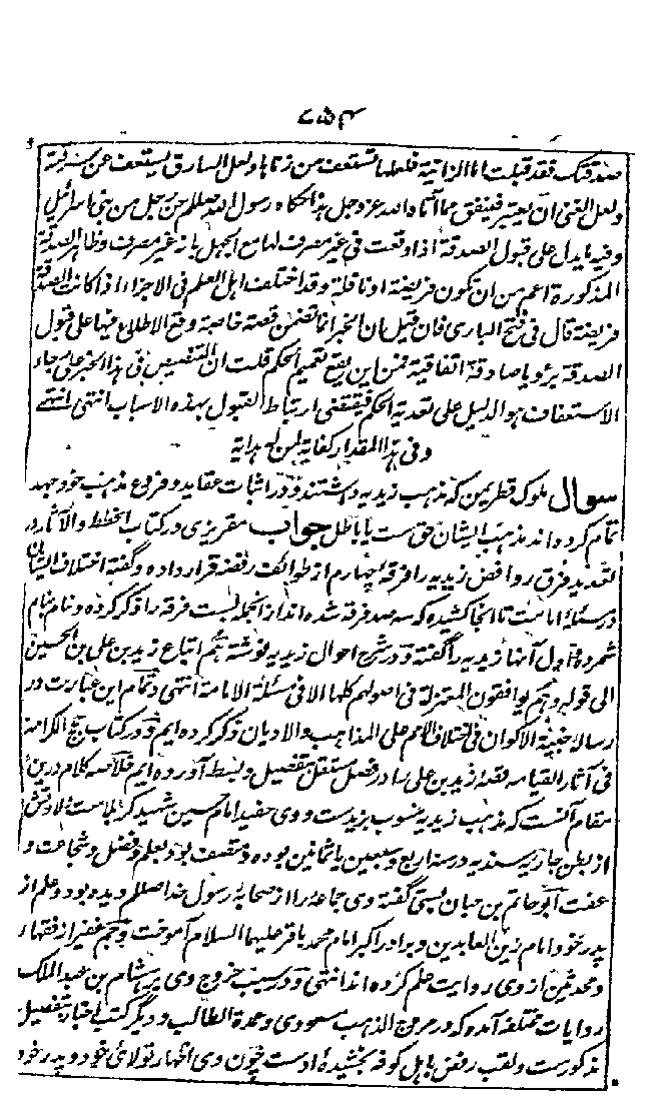 ۷۵۴
صدقتک فقد قبلت اما الزانیة فلعلها تستعف من زناها ولعل السارق یستعف عن سرقته
ولعل الغنی ان یعتبر فینفق مما آتاه الله عز وجل هذا حکاه رسول الله صلعم عن رجل من بنی اسرائیل
وفیه ما یدل علی قبول الصدقة اذا وقعت فی غیر مصرف لها مع الجهل بانه غیر مصرف وظاهر الصدقة
المذکورة اعم من ان تکون فریضة او نافلة وقد اختلف اهل العلم فی الاجزاء اذا کانت الصدقة
فریضة قال فی فتح الباری فان قیل ان الخبر انما تضمن قصة خاصة وقع الاطلاع فیها علی قبول
الصدقة برؤیا صادقة اتفاقیة فمن این یقع تعمیم الحکم قلت ان التنصیص فی هذا الخبر علی رجاء
الاستعفاف هو الدلیل علی تعدیة الحکم فیقتضی ارتباط القبول بهذه الاسباب انتهی
وفی هذا المقدار کفایة لمن له هدایة
سوال ملوک قطر یمن که مذهب زیدیه داشتند و در اثبات عقاید و فروع مذهب خود جهد
تمام کرده اند مذهب ایشان حق ست یا باطل جواب مقریزی در کتاب الخطط والآثار در
تعدید فرق روافض زیدیه را فرقه چهارم از طوائف رفضه قرار داده و گفته اختلاف ایشان
در مسئله امامت تا آنجا کشیده که سه صد فرقه شده اند از انجمله بست فرقه را ذکر کرده و نام بنام
شمرده و اول آنها زیدیه را گفته و در شرح احوال زیدیه نوشته هم اتباع زید بن علی بن الحسین
الی قوله وهم یوافقون المعتزلة فی اصولهم کلها الا فی مسئلة الامامة انتهی و تمام این عبارت در
رساله خبیئة الاکوان فی افتراق الامم علی المذاهب والادیان ذکر کرده ایم و در کتاب حجج الکرامة
فی آثار القیامه قصه زید بن علی را در فصل مستقل بتفصیل و بسط آورده ایم خلاصه کلام درین
مقام آنست که مذهب زیدیه منسوب بزیدست و وی حفید امام حسین شهید کربلاست ولادتش
از بطن جاریه سندیه در سنه اربع و سبعین یا ثمانین بوده و متصف بود بعلم و فضل و شجاعت و
عفت ابو حاتم بن حبان بستی گفته وی جماعه را از صحابه رسول خدا صلعم دیده بود و علم از
پدر خود امام زین العابدین و برادر اکبر امام محمد باقر علیهما السلام آموخت و جم غفیر از فقهاء
و محدثین از وی روایت علم کرده اند انتهی و در سبب خروج وی بر هشام بن عبد الملک
روایات مختلفه آمده که در مروج الذهب مسعودی و عمدة الطالب و دیگر کتب اخبار بتفصیل
مذکورست و لقب رفض باهل کوفه بخشیده اوست چون وی اظهار تولای خود و پدر خود